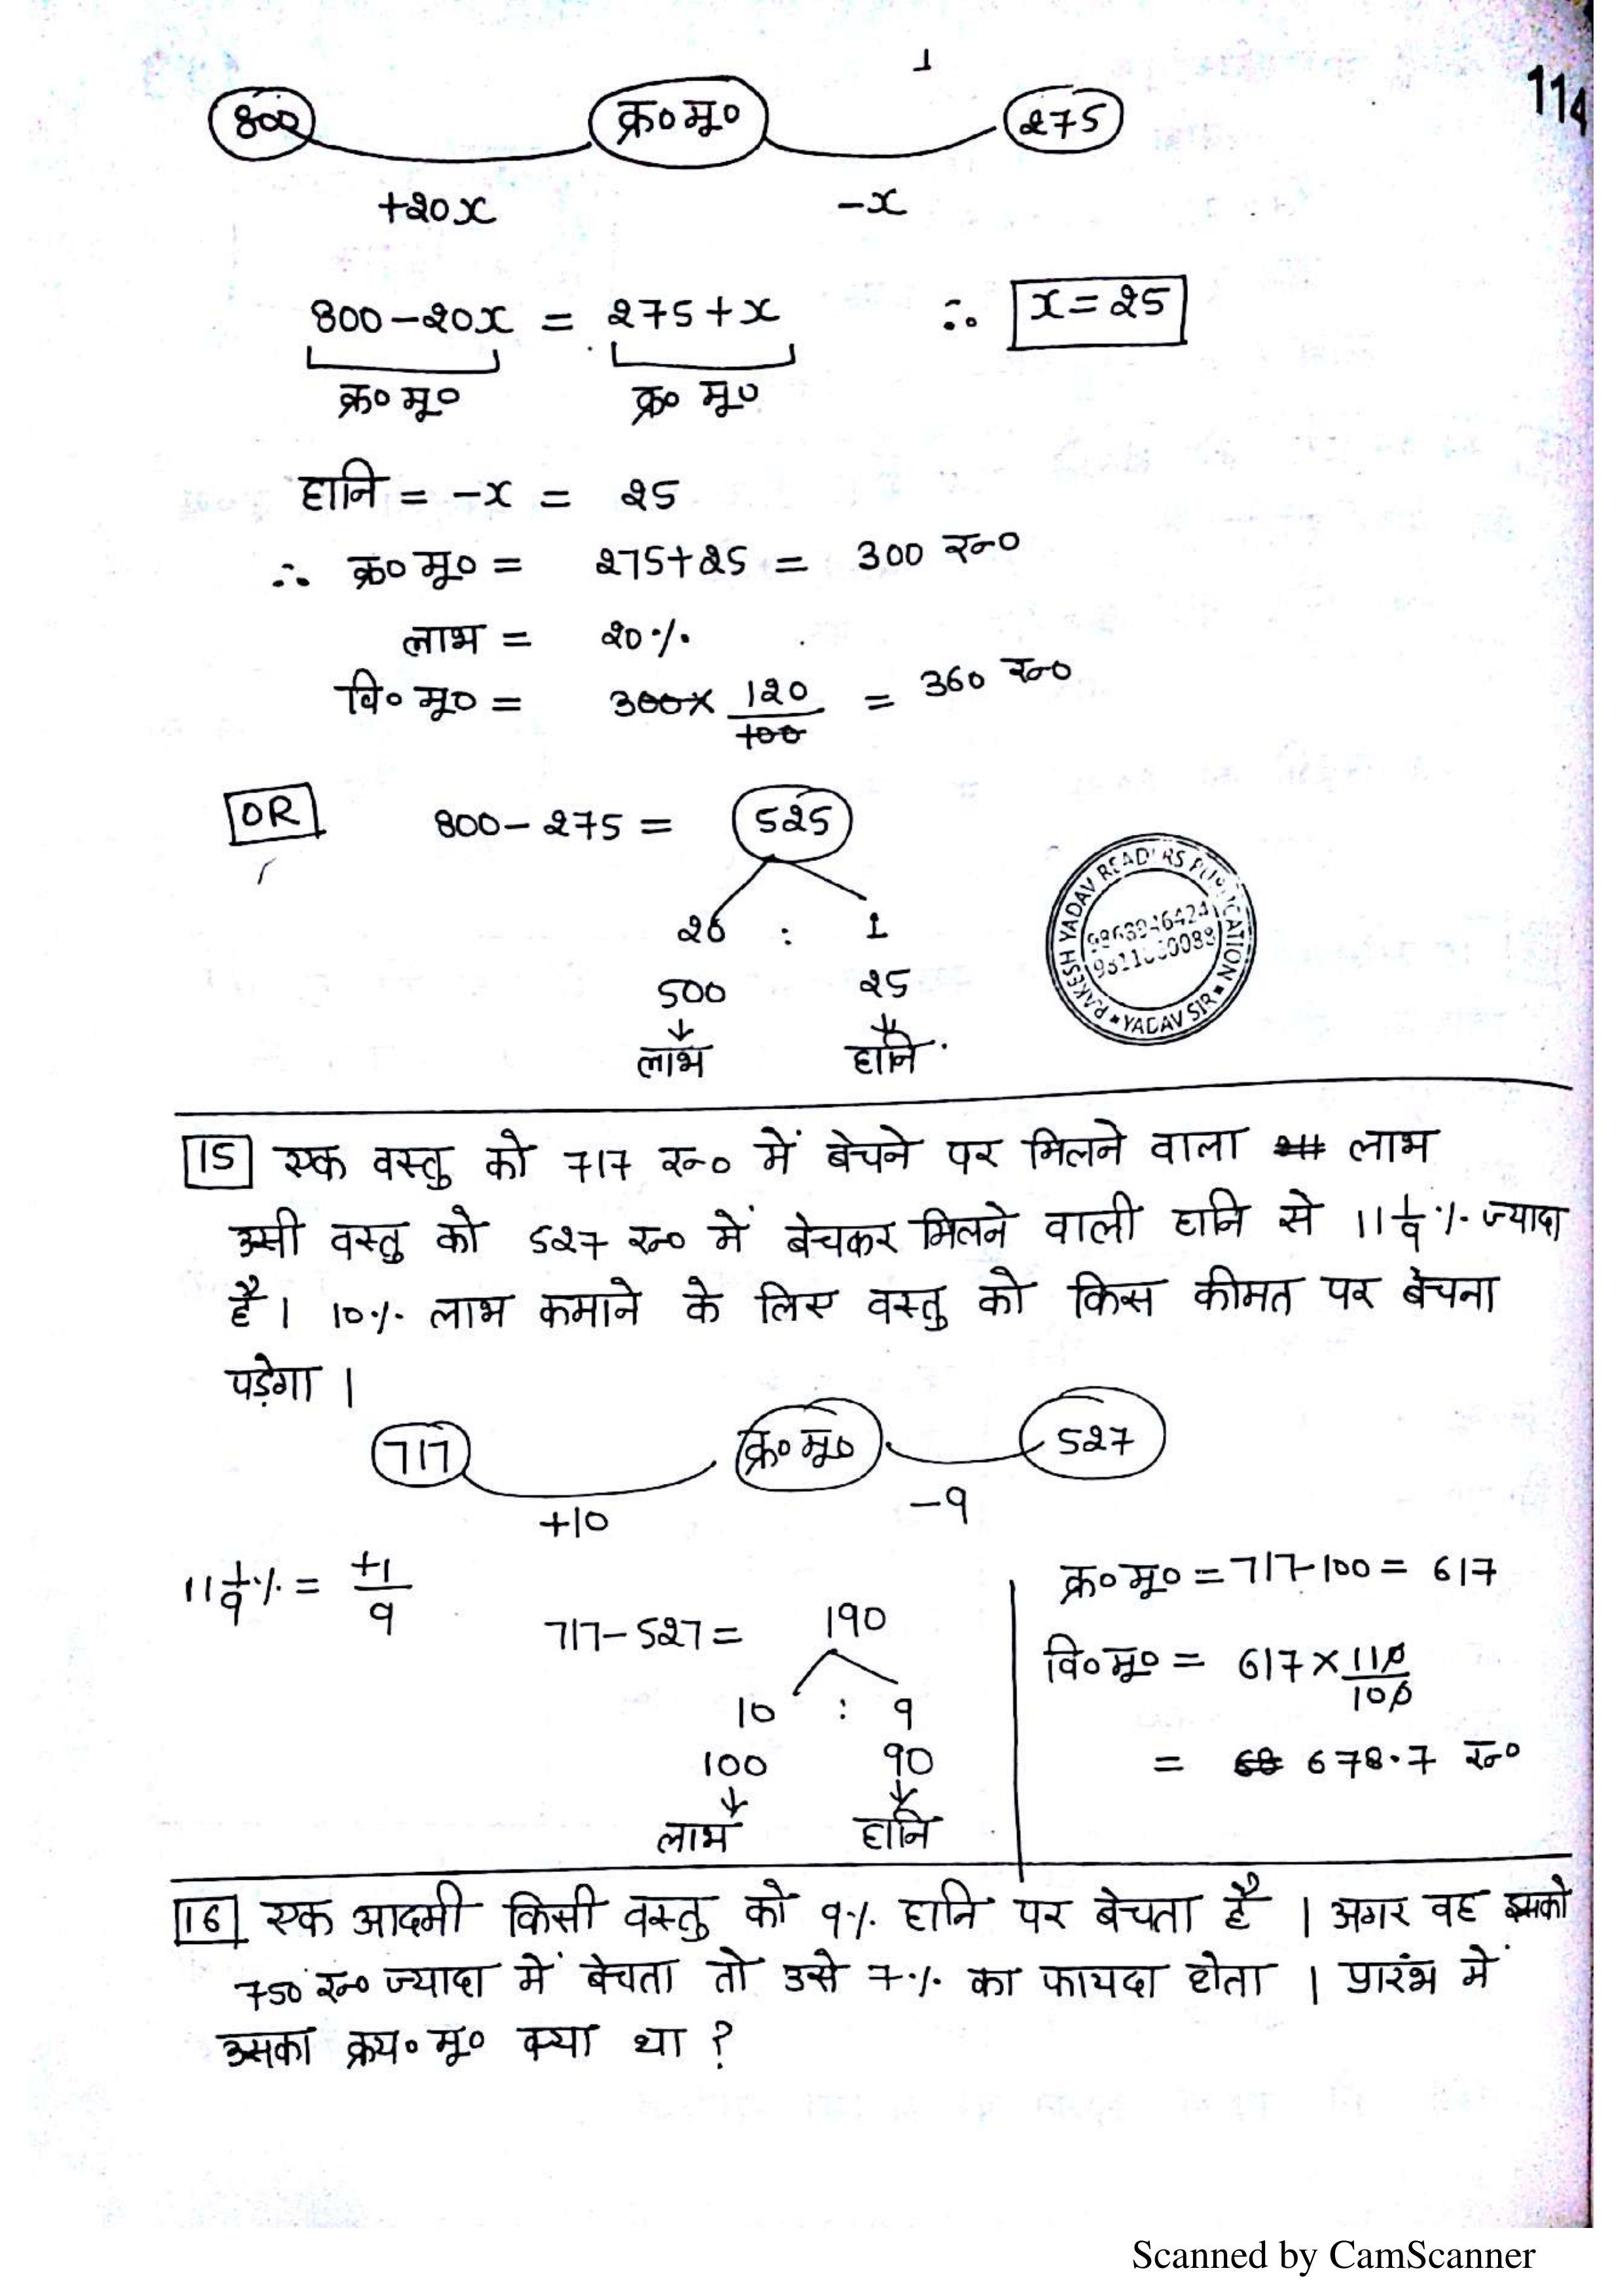 114
800 क्र० मू० 275
+20x -x
800-20x = 275+x ∴ x=25
क्र० मू० क्र० मू०
हानि = -x = 25
∴ क्र० मू० = 275+25 = 300 रू०
लाभ = 20%
वि० मू० = 300× 120/100 = 360 रू०
OR 800-275 = 525
20 : 1
500 25
लाभ हानि
RAKESH YADAV READERS PUBLICATION
YADAV SIR
15 एक वस्तु को 717 रू० में बेचने पर मिलने वाला लाभ
उसी वस्तु को 527 रू० में बेचकर मिलने वाली हानि से 11 1/9 % ज्यादा
है। 10% लाभ कमाने के लिए वस्तु को किस कीमत पर बेचना
पड़ेगा।
717 क्र० मू० 527
+10 -9
11 1/9 % = +1/9
717-527 = 190
10 : 9
100 90
लाभ हानि
क्र० मू० = 717-100 = 617
वि० मू० = 617 × 110/100
= 678.7 रू०
16 एक आदमी किसी वस्तु को 9% हानि पर बेचता है। अगर वह इसको
750 रू० ज्यादा में बेचता तो उसे 7% का फायदा होता। प्रारंभ में
उसका क्रय० मू० क्या था ?
Scanned by CamScanner